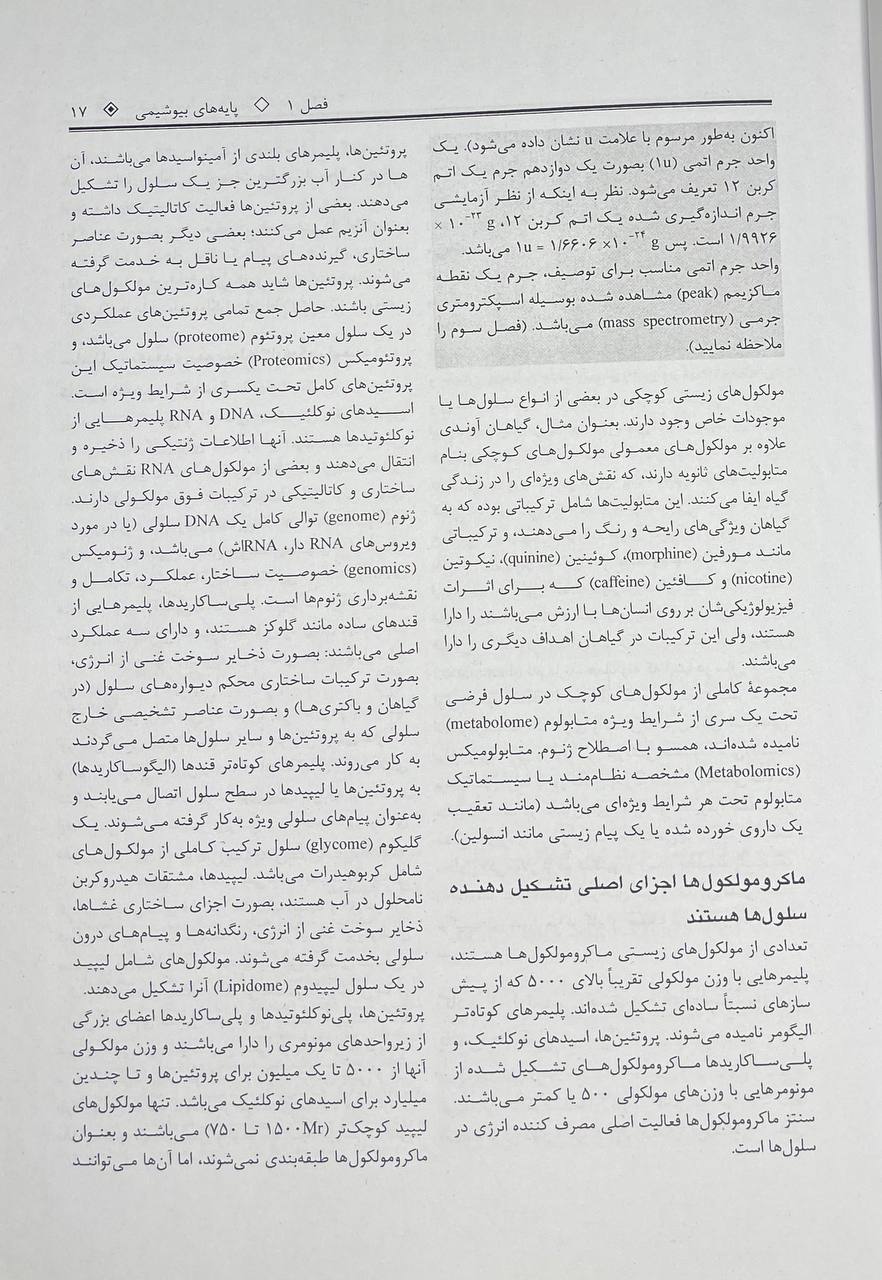 فصل ۱ ◇ پایه‌های بیوشیمی ۱۷
اکنون به‌طور مرسوم با علامت u نشان داده می‌شود). یک
واحد جرم اتمی (۱u) بصورت یک دوازدهم جرم یک اتم
کربن ۱۲ تعریف می‌شود. نظر به اینکه از نظر آزمایشی
جرم اندازه‌گیری شده یک اتم کربن ۱۲، ۱۰⁻²³ g ×
۱/۹۹۲۶ است. پس ۱u = ۱/۶۶۰۶ ×۱۰⁻²⁴ g می‌باشد.
واحد جرم اتمی مناسب برای توصیف، جرم یک نقطه
ماکزیمم (peak) مشاهده شده بوسیله اسپکترومتری
جرمی (mass spectrometry) می‌باشد. (فصل سوم را
ملاحظه نمایید).
مولکول‌های زیستی کوچکی در بعضی از انواع سلول‌ها یا
موجودات خاص وجود دارند. بعنوان مثال، گیاهان آوندی
علاوه بر مولکول‌های معمولی مولکول‌های کوچکی بنام
متابولیت‌های ثانویه دارند، که نقش‌های ویژه‌ای را در زندگی
گیاه ایفا می‌کنند. این متابولیت‌ها شامل ترکیباتی بوده که به
گیاهان ویژگی‌های رایحه و رنگ را می‌دهند، و ترکیباتی
مانند مورفین (morphine)، کوئینین (quinine)، نیکوتین
(nicotine) و کافئین (caffeine) که برای اثرات
فیزیولوژیکی‌شان بر روی انسان‌ها با ارزش می‌باشند را دارا
هستند، ولی این ترکیبات در گیاهان اهداف دیگری را دارا
می‌باشند.
مجموعهٔ کاملی از مولکول‌های کوچک در سلول فرضی
تحت یک سری از شرایط ویژه متابولوم (metabolome)
نامیده شده‌اند، همسو با اصطلاح ژنوم. متابولومیکس
(Metabolomics) مشخصه نظام‌مند یا سیستماتیک
متابولوم تحت هر شرایط ویژه‌ای می‌باشد (مانند تعقیب
یک داروی خورده شده یا یک پیام زیستی مانند انسولین).
ماکرومولکول‌ها اجزای اصلی تشکیل دهنده
سلول‌ها هستند
تعدادی از مولکول‌های زیستی ماکرومولکول‌ها هستند،
پلیمرهایی با وزن مولکولی تقریباً بالای ۵۰۰۰ که از پیش
سازهای نسبتاً ساده‌ای تشکیل شده‌اند. پلیمرهای کوتاه‌تر
الیگومر نامیده می‌شوند. پروتئین‌ها، اسیدهای نوکلئیک، و
پلی‌ساکاریدها ماکرومولکول‌های تشکیل شده از
مونومرهایی با وزن‌های مولکولی ۵۰۰ یا کمتر می‌باشند.
سنتز ماکرومولکول‌ها فعالیت اصلی مصرف کننده انرژی در
سلول‌ها است.
پروتئین‌ها، پلیمرهای بلندی از آمینواسیدها می‌باشند، آن
ها در کنار آب بزرگترین جز یک سلول را تشکیل
می‌دهند. بعضی از پروتئین‌ها فعالیت کاتالیتیک داشته و
بعنوان آنزیم عمل می‌کنند؛ بعضی دیگر بصورت عناصر
ساختاری، گیرنده‌های پیام یا ناقل به خدمت گرفته
می‌شوند. پروتئین‌ها شاید همه کاره‌ترین مولکول‌های
زیستی باشند. حاصل جمع تمامی پروتئین‌های عملکردی
در یک سلول معین پروتئوم (proteome) سلول می‌باشد، و
پروتئومیکس (Proteomics) خصوصیت سیستماتیک این
پروتئین‌های کامل تحت یکسری از شرایط ویژه است.
اسیدهای نوکلئیک، DNA و RNA پلیمرهایی از
نوکلئوتیدها هستند. آنها اطلاعات ژنتیکی را ذخیره و
انتقال می‌دهند و بعضی از مولکول‌های RNA نقش‌های
ساختاری و کاتالیتیکی در ترکیبات فوق مولکولی دارند.
ژنوم (genome) توالی کامل یک DNA سلولی (یا در مورد
ویروس‌های RNA دار، RNAاش) می‌باشد، و ژنومیکس
(genomics) خصوصیت ساختار، عملکرد، تکامل و
نقشه‌برداری ژنوم‌ها است. پلی‌ساکاریدها، پلیمرهایی از
قندهای ساده مانند گلوکز هستند، و دارای سه عملکرد
اصلی می‌باشند: بصورت ذخایر سوخت غنی از انرژی،
بصورت ترکیبات ساختاری محکم دیواره‌های سلول (در
گیاهان و باکتری‌ها) و بصورت عناصر تشخیصی خارج
سلولی که به پروتئین‌ها و سایر سلول‌ها متصل می‌گردند
به کار می‌روند. پلیمرهای کوتاه‌تر قندها (الیگوساکاریدها)
به پروتئین‌ها یا لیپیدها در سطح سلول اتصال می‌یابند و
به‌عنوان پیام‌های سلولی ویژه به‌کار گرفته می‌شوند. یک
گلیکوم (glycome) سلول ترکیب کاملی از مولکول‌های
شامل کربوهیدرات می‌باشد. لیپیدها، مشتقات هیدروکربن
نامحلول در آب هستند، بصورت اجزای ساختاری غشاها،
ذخایر سوخت غنی از انرژی، رنگدانه‌ها و پیام‌های درون
سلولی بخدمت گرفته می‌شوند. مولکول‌های شامل لیپید
در یک سلول لیپیدوم (Lipidome) آنرا تشکیل می‌دهند.
پروتئین‌ها، پلی‌نوکلئوتیدها و پلی‌ساکاریدها اعضای بزرگی
از زیرواحدهای مونومری را دارا می‌باشند و وزن مولکولی
آنها از ۵۰۰۰ تا یک میلیون برای پروتئین‌ها و تا چندین
میلیارد برای اسیدهای نوکلئیک می‌باشد. تنها مولکول‌های
لیپید کوچک‌تر (۱۵۰۰Mr تا ۷۵۰) می‌باشند و بعنوان
ماکرومولکول‌ها طبقه‌بندی نمی‌شوند، اما آن‌ها می‌توانند